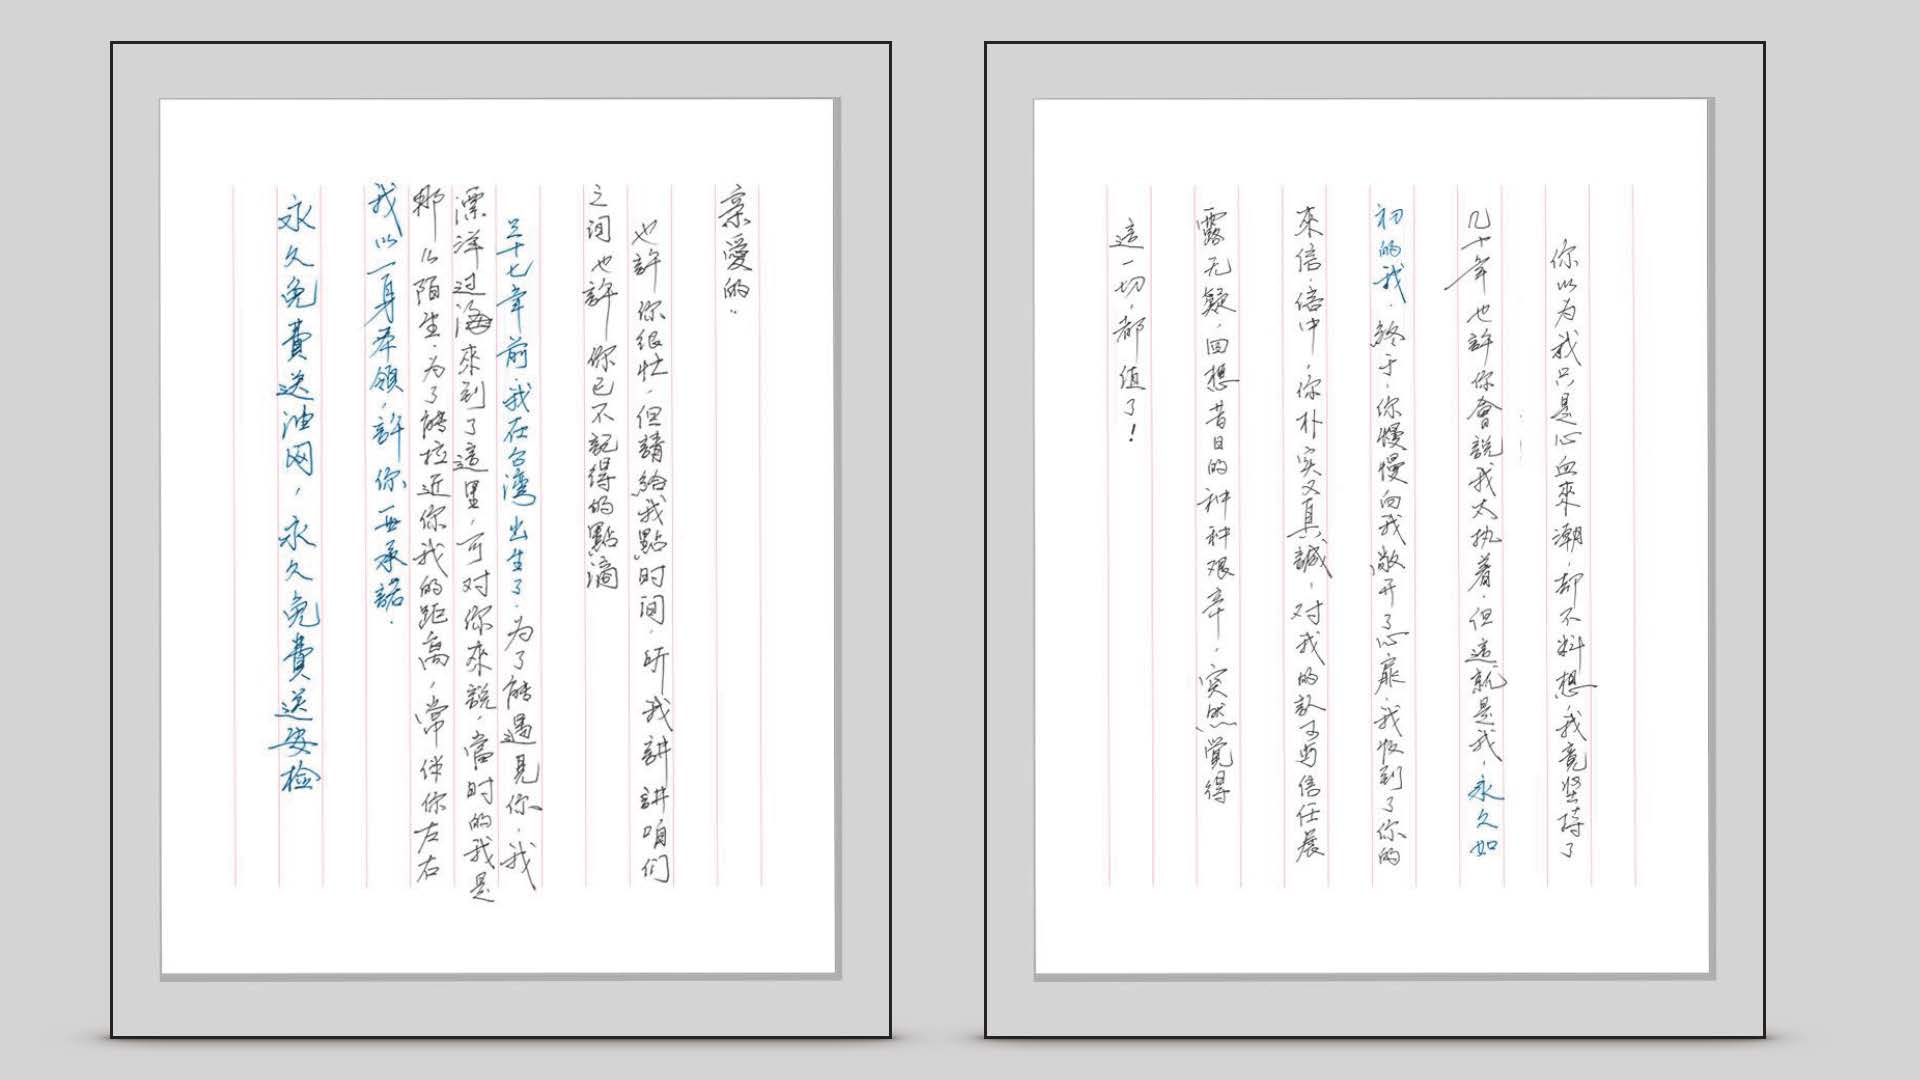 亲愛的.
也許你很忙,但請給我點时间,听我讲讲咱们
之间也許你已不記得的點滴
三十七年前,我在台湾出生了.为了能遇見你,我
漂洋过海來到了這里,可对你來説,當时的我是
那么陌生.为了能拉近你我的距离,常伴你左右
我以一身本領,許你一承諾.
永久免費送油网,永久免費送安检
你以为我只是心血來潮,却不料想,我竟坚持了
几十年也許你會説我太执着,但這就是我,永久如
初的我.終于,你慢慢向我敞开了心扉,我收到了你的
來信,信中,你朴实又真誠,对我的认可与信任展
露无疑,回想昔日的种种艰辛,突然覚得
這一切,都值了!